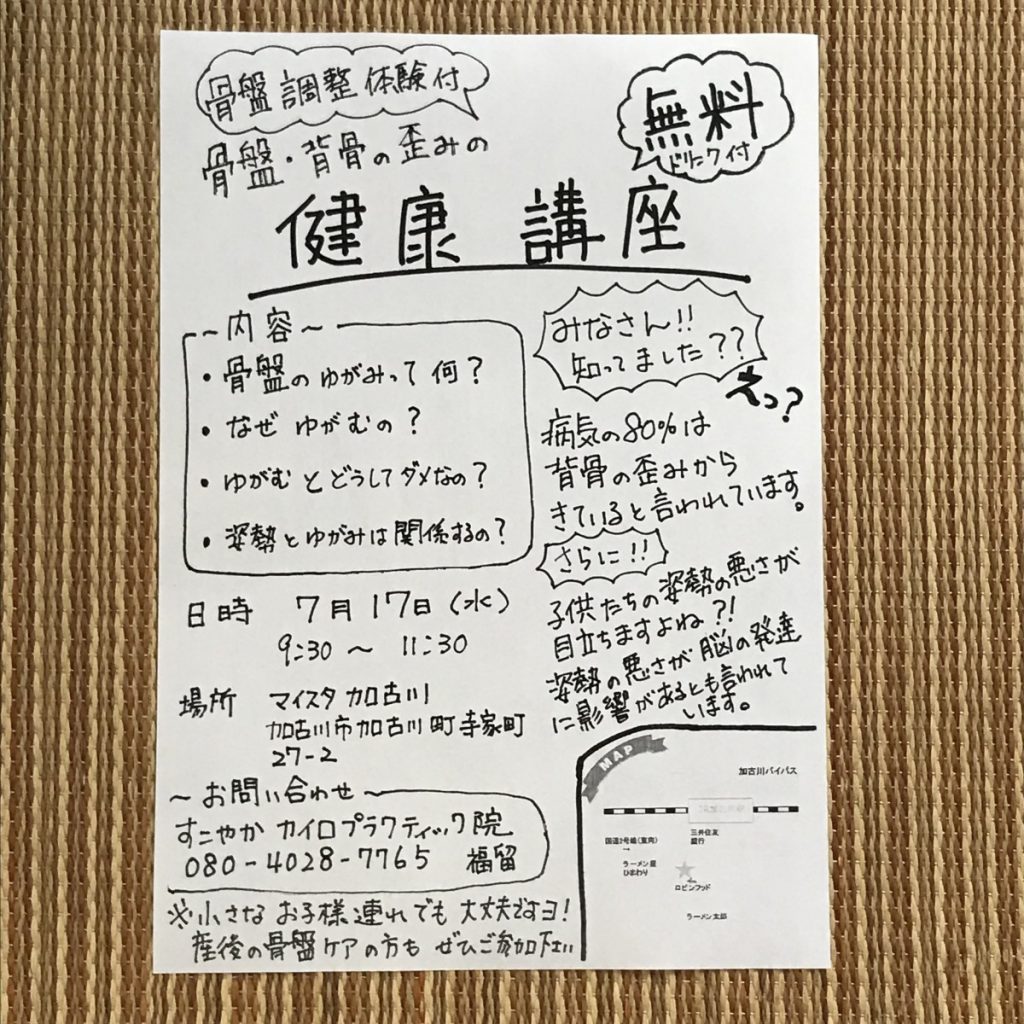 骨盤調整体験付
無料
ドリンク付
骨盤・背骨の歪みの
健康講座
～内容～
・骨盤のゆがみって何？
・なぜゆがむの？
・ゆがむとどうしてダメなの？
・姿勢とゆがみは関係するの？
みなさん!!
知ってました??
えっ?
病気の80%は
背骨の歪みから
きていると言われています。
さらに!!
子供たちの姿勢の悪さが
目立ちますよね?!
姿勢の悪さが脳の発達
に影響があるとも言われて
います。
日時 7月17日(水)
9:30～11:30
場所 マイスタ加古川
加古川市加古川町寺家町
27-2
～お問い合わせ～
すこやかカイロプラクティック院
080-4028-7765 福留
※小さなお子様連れでも大丈夫ですヨ!
産後の骨盤ケアの方もぜひご参加下さい
MAP
加古川バイパス
国道2号線(東向)
→
三井住友
銀行
ラーメン屋
ひまわり
ロビンフッド
ラーメン太郎